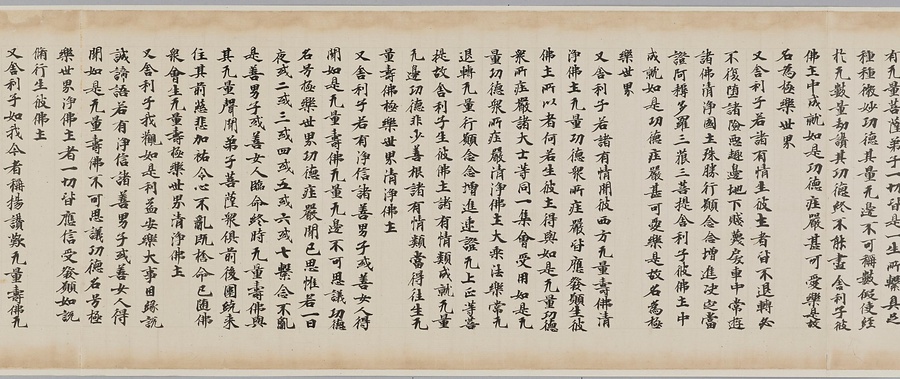 有无量菩薩弟子一切皆是一生所繫具足
種種微妙功德其量无邊不可稱數假使經
於无數量劫讚其功德終不能盡舍利子彼
佛土中成就如是功德莊嚴甚可愛樂是故
名為極樂世界
又舍利子若諸有情生彼土者皆不退轉必
不復墮諸險惡趣邊地下賤蔑戾車中常遊
諸佛清淨國土殊勝行願念念增進決定當
證阿耨多羅三藐三菩提舍利子彼佛土中
成就如是功德莊嚴甚可愛樂是故名為極
樂世界
又舍利子若諸有情聞彼西方无量壽佛清
淨佛土无量功德眾所莊嚴皆應發願生彼
佛土所以者何若生彼土得與如是无量功德
眾所莊嚴諸大士等同一集會受用如是无
量功德眾所莊嚴清淨佛土大乘法樂常无
退轉无量行願念念增進速證无上正等菩
提故舍利子生彼佛土諸有情類成就无量
无邊功德非少善根諸有情類當得往生无
量壽佛極樂世界清淨佛土
又舍利子若有淨信諸善男子或善女人得
聞如是无量壽佛无量无邊不可思議功德
名号極樂世界功德莊嚴聞已思惟若一日
夜或二或三或四或五或六或七繫念不亂
是善男子或善女人臨命終時无量壽佛與
其无量聲聞弟子菩薩眾俱前後圍繞來
住其前慈悲加祐令心不亂既捨命已隨佛
眾會生无量壽極樂世界清淨佛土
又舍利子我觀如是利益安樂大事因緣說
誠諦語若有淨信諸善男子或善女人得
聞如是无量壽佛不可思議功德名号極
樂世界淨佛土者一切皆應信受發願如說
脩行生彼佛土
又舍利子如我今者稱揚讚歎无量壽佛无